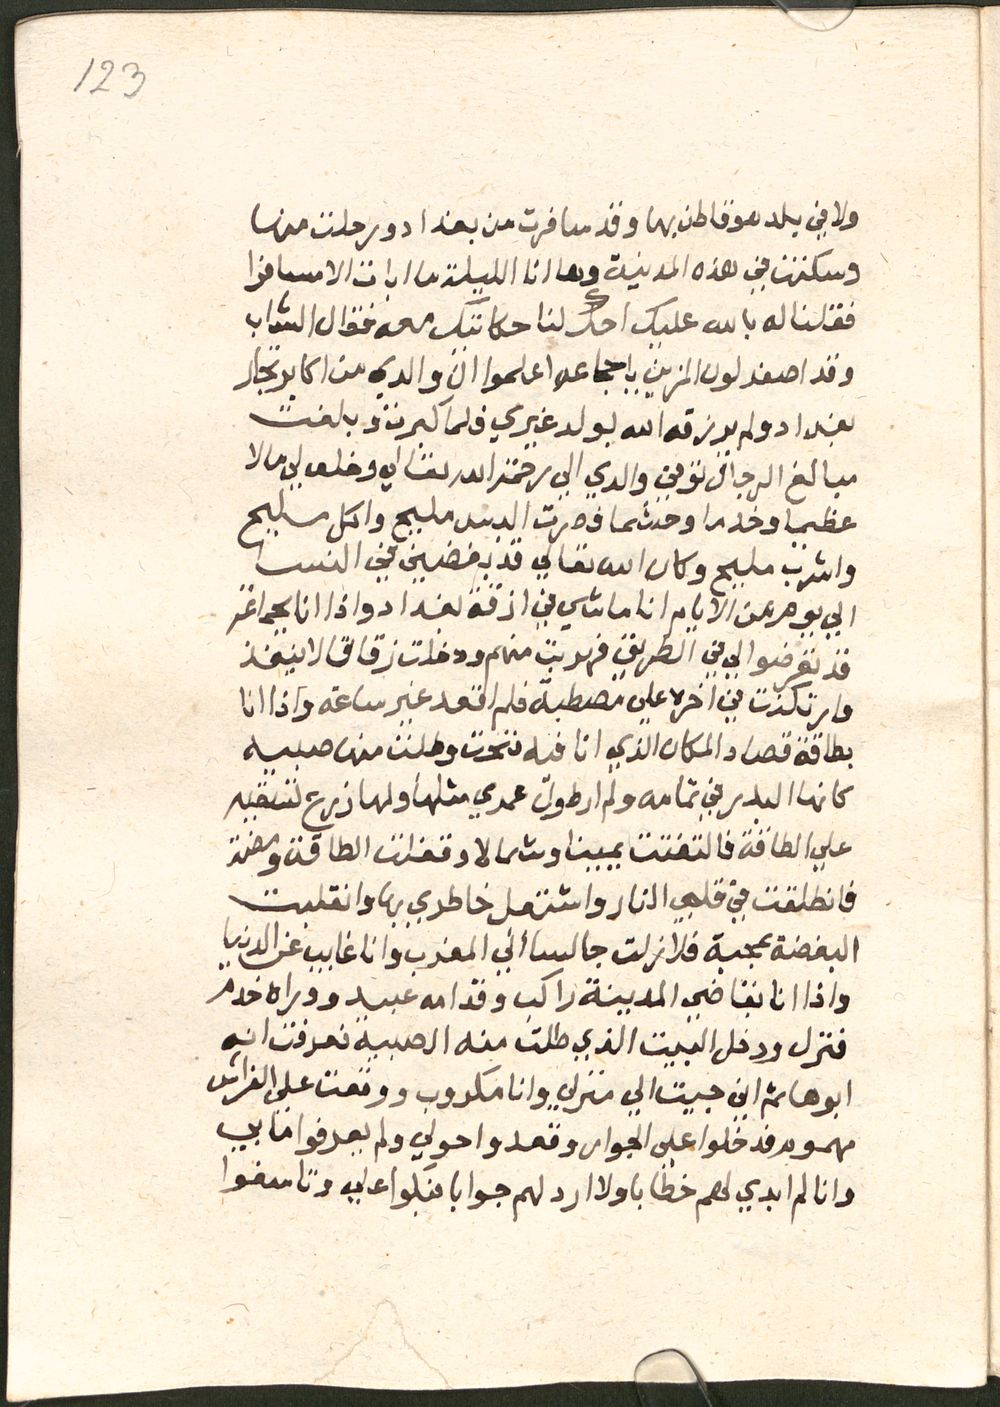 123
ولا في بلد هو قاطن بها وقد سافرت من بغداد ورحلت منها
وسكنت في هذه المدينة وها انا الليلة ما ابات الا مسافرا
فقلنا له بالله عليك احكي لنا حكايتك معه فقال الشاب
وقد اصفر لون المزين يا جماعه اعلموا ان والدي من اكابر تجار
بغداد ولم يرزقه الله بولد غيري فلما كبرت وبلغت
مبالغ الرجال توفي والدي الي رحمة الله تعالي وخلف لي مالا
عظيما وخدما وحشما فصرت البس مليح واكل مليح
واشرب مليح وكان الله تعالي قد بغضني في النسا
الي يوم من الايام انا ماشي في ازقة بغداد واذا انا بجماعة
قد تعرضوا لي في الطريق فهربت منهم ودخلت زقاقا لا ينفذ
وارتكنت في اخره علي مصطبة فلم اقعد غير ساعة واذا انا
بطاقة قصاد المكان الذي انا فيه فتحت وطلت منها صبية
كانها البدر في تمامه ولم ار طول عمري مثلها ولها زرع تسقيه
علي الطاقة فالتفتت يمينا وشمالا وقفلت الطاقة ومضت
فانطلقت في قلبي النار واشتغل خاطري بها وانقلبت
البغضة بمحبة فلا زلت جالسا الي المغرب وانا غايب عن الدنيا
واذا انا بقاضي المدينة راكب وقدامه عبيد ووراه خدم
فنزل ودخل البيت الذي طلت منه الصبية فعرفت انه
ابوها ثم اني جيت الي منزلي وانا مكروب ووقعت علي الفراش
مهموم فدخلوا علي الجوار وقعدوا حولي ولم يعرفوا ما بي
وانا لم ابدي لهم خطابا ولا ارد لهم جوابا فبكوا علي وتاسفوا